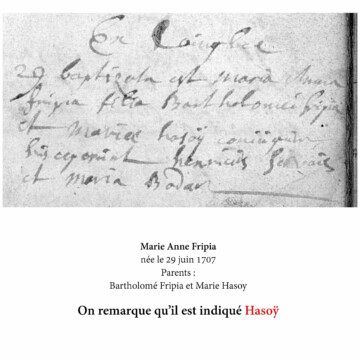 En Lainglee
29 baptizata est Maria Anna
fripia filia Bartholomei fripia
et Mariae hasoÿ coniugum
susceperunt henricus Servais
et maria Bodar
Marie Anne Fripia
née le 29 juin 1707
Parents :
Bartholomé Fripia et Marie Hasoy
On remarque qu’il est indiqué Hasoÿ